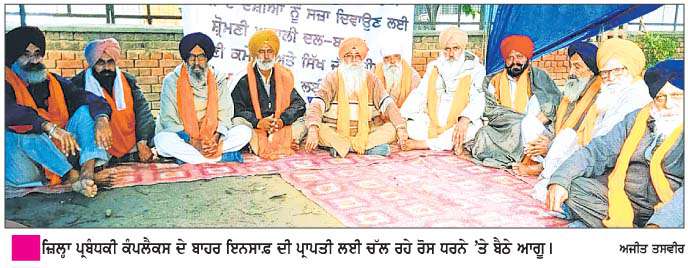 ਦੋਸ਼ੀਆਂ ਨੂੰ ਸਜ਼ਾ ਦਿਵਾਉਣ ਲਈ
ਸ਼੍ਰੋਮਣੀ ਦਲ-
ਸਿੱਖ
ਜ਼ਿਲ੍ਹਾ ਪ੍ਰਬੰਧਕੀ ਕੰਪਲੈਕਸ ਦੇ ਬਾਹਰ ਇਨਸਾਫ਼ ਦੀ ਪ੍ਰਾਪਤੀ ਲਈ ਚੱਲ ਰਹੇ ਰੋਸ ਧਰਨੇ 'ਤੇ ਬੈਠੇ ਆਗੂ। ਅਜੀਤ ਤਸਵੀਰ